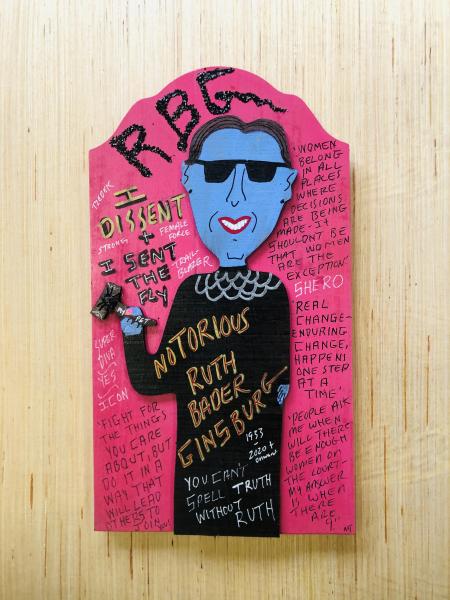 RBG
I
DISSENT
+
I SENT
THE
FLY
STRONG
FEMALE
FORCE
TRAIL
BLAZER
SUPER
DIVA
YES
ICON
'FIGHT FOR
THE THINGS
YOU CARE
ABOUT, BUT
DO IT IN A
WAY THAT
WILL LEAD
OTHERS TO
JOIN YOU'
NOTORIOUS
RUTH
BADER
GINSBURG
1933
-
2020 +
ONWARD
YOU CAN'T
SPELL TRUTH
WITHOUT RUTH
'WOMEN
BELONG
IN ALL
PLACES
WHERE
DECISIONS
ARE BEING
MADE. It
SHOULDN'T BE
THAT WOMEN
ARE THE
EXCEPTION'
SHERO
'REAL
CHANGE-
ENDURING
CHANGE,
HAPPENS
ONE STEP
AT A
TIME'
'PEOPLE ASK
ME WHEN
WILL THERE
BE ENOUGH
WOMEN ON
THE COURT-
MY ANSWER
IS WHEN
THERE
ARE
9.'